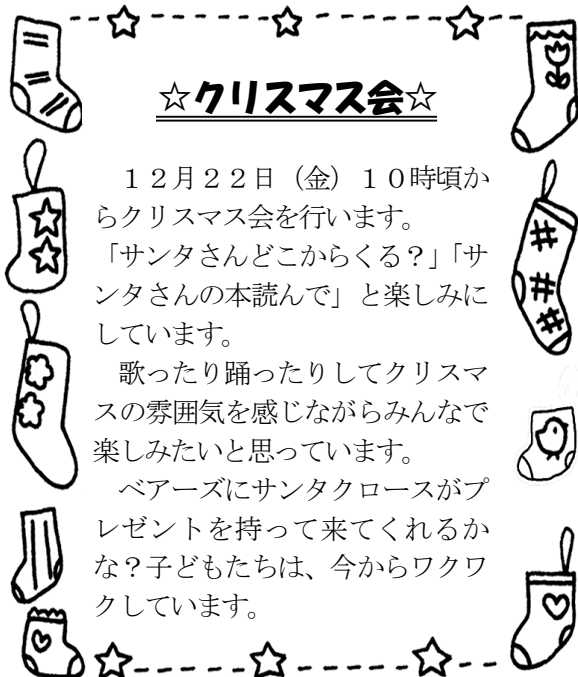 ☆クリスマス会☆
１２月２２日（金）１０時頃か
らクリスマス会を行います。
「サンタさんどこからくる？」「サ
ンタさんの本読んで」と楽しみに
しています。
歌ったり踊ったりしてクリスマ
スの雰囲気を感じながらみんなで
楽しみたいと思っています。
ベアーズにサンタクロースがプ
レゼントを持って来てくれるか
な？子どもたちは、今からワクワ
クしています。